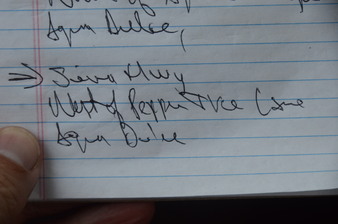 Agua Dulce,
⇒ Sierra Hwy
West of Pepper Tree Lane
Agua Dulce